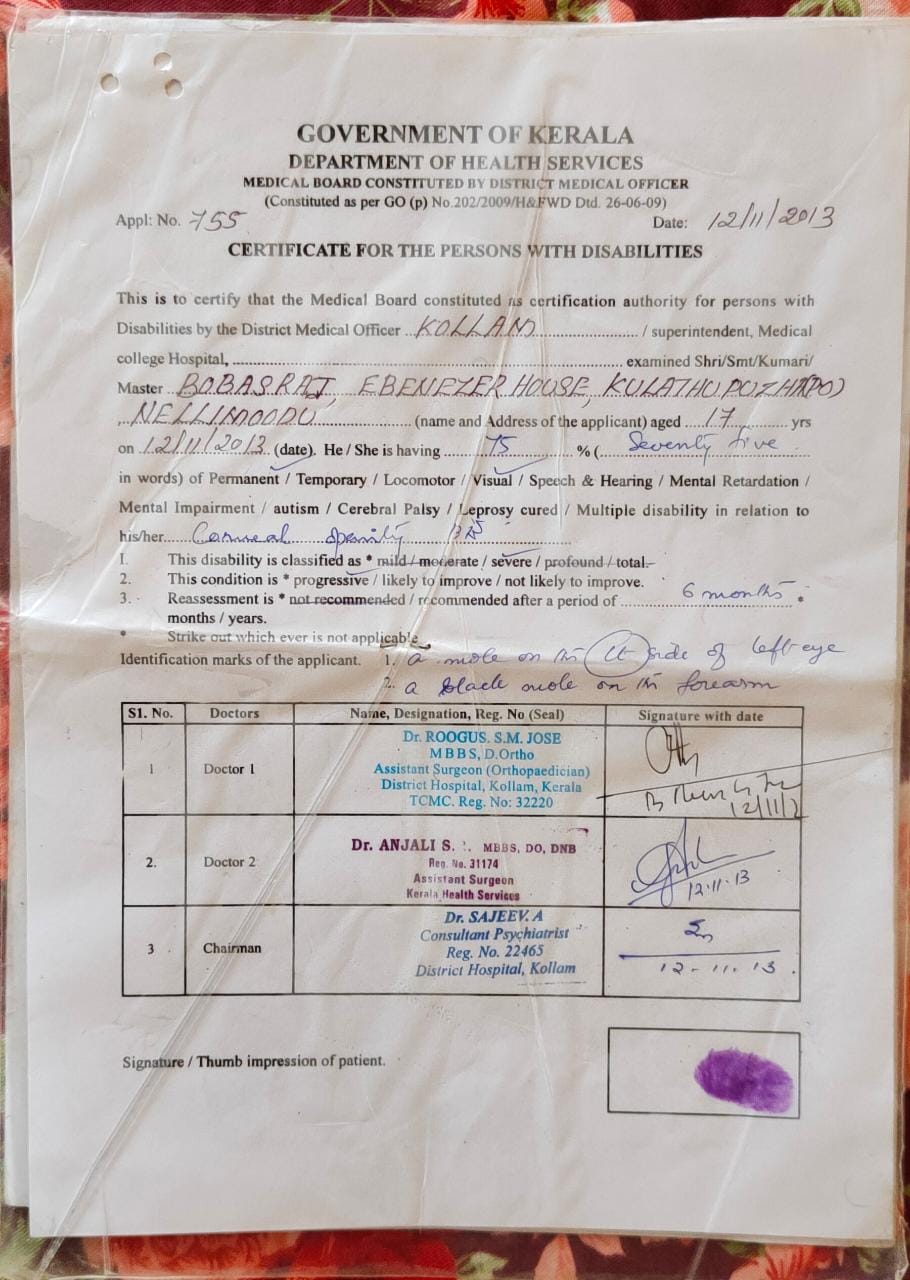 GOVERNMENT OF KERALA
DEPARTMENT OF HEALTH SERVICES
MEDICAL BOARD CONSTITUTED BY DISTRICT MEDICAL OFFICER
(Constituted as per GO (p) No.202/2009/H&FWD Dtd. 26-06-09)
Appl: No. 755 Date: 12/11/2013
CERTIFICATE FOR THE PERSONS WITH DISABILITIES
This is to certify that the Medical Board constituted as certification authority for persons with
Disabilities by the District Medical Officer KOLLAM / superintendent, Medical
college Hospital, examined Shri/Smt/Kumari/
Master BOBASRAJ, EBENEZER HOUSE, KULATHUPUZHA(PO)
NELLIMOODU (name and Address of the applicant) aged 17 yrs
on 12/11/2013 (date). He / She is having 75 % ( Seventy five
in words) of Permanent / Temporary / Locomotor / Visual / Speech & Hearing / Mental Retardation /
Mental Impairment / autism / Cerebral Palsy / Leprosy cured / Multiple disability in relation to
his/her Corneal opacity
1. This disability is classified as * mild / moderate / severe / profound / total.
2. This condition is * progressive / likely to improve / not likely to improve.
3. Reassessment is * not recommended / recommended after a period of 6 months *
months / years.
* Strike out which ever is not applicable
Identification marks of the applicant. 1. a mole on the Lt side of left eye
2. a black mole on the forearm
S1. No. Doctors Name, Designation, Reg. No (Seal) Signature with date
1 Doctor 1 Dr. ROOGUS. S.M. JOSE
MBBS, D.Ortho
Assistant Surgeon (Orthopaedician)
District Hospital, Kollam, Kerala
TCMC. Reg. No: 32220
12/11/
2. Doctor 2 Dr. ANJALI S. MBBS, DO, DNB
Reg. No. 31174
Assistant Surgeon
Kerala Health Services
12.11.13
3 Chairman Dr. SAJEEV. A
Consultant Psychiatrist
Reg. No. 22465
District Hospital, Kollam
12-11-13.
Signature / Thumb impression of patient.